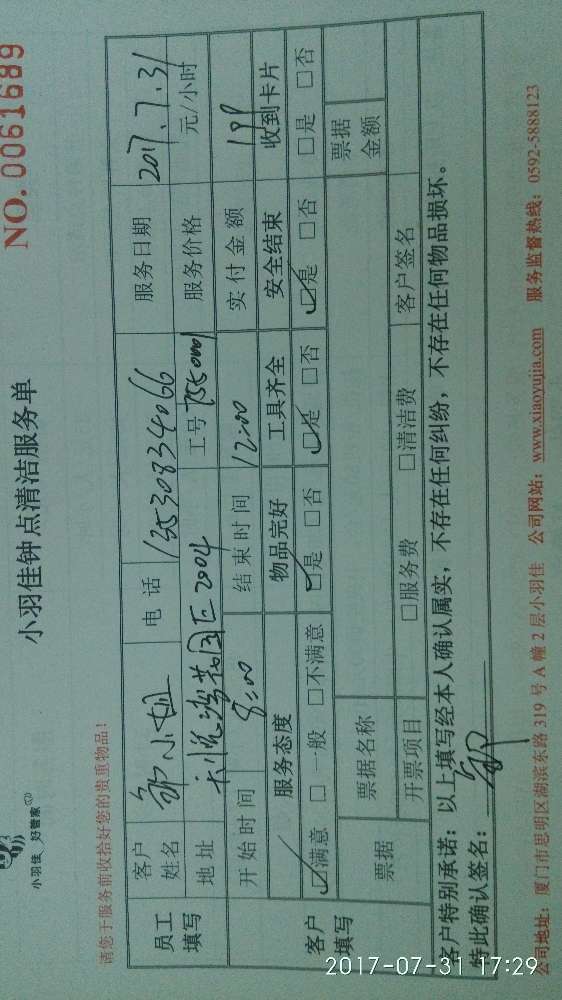 小羽佳 好管家
小羽佳钟点清洁服务单
NO. 0061689
请您于服务前收拾好您的贵重物品！
员工填写 客户姓名 郭小姐 电话 13530834066 服务日期 2017.7.31
地址 区2004 工号 服务价格 元/小时
客户填写 开始时间 8:00 结束时间 12:00 实付金额 199
服务态度 物品完好 工具齐全 安全结束 收到卡片
☑满意 □一般 □不满意 ☑是 □否 ☑是 □否 ☑是 □否 □是 □否
票据 票据名称 票据金额
开票项目 □服务费 □清洁费 客户签名
客户特别承诺：以上填写经本人确认属实，不存在任何纠纷，不存在任何物品损坏。
特此确认签名： 郭
公司地址：厦门市思明区湖滨东路 319 号 A 幢 2 层小羽佳 公司网站：www.xiaoyujia.com 服务监督热线：0592-5888123
2017-07-31 17:29